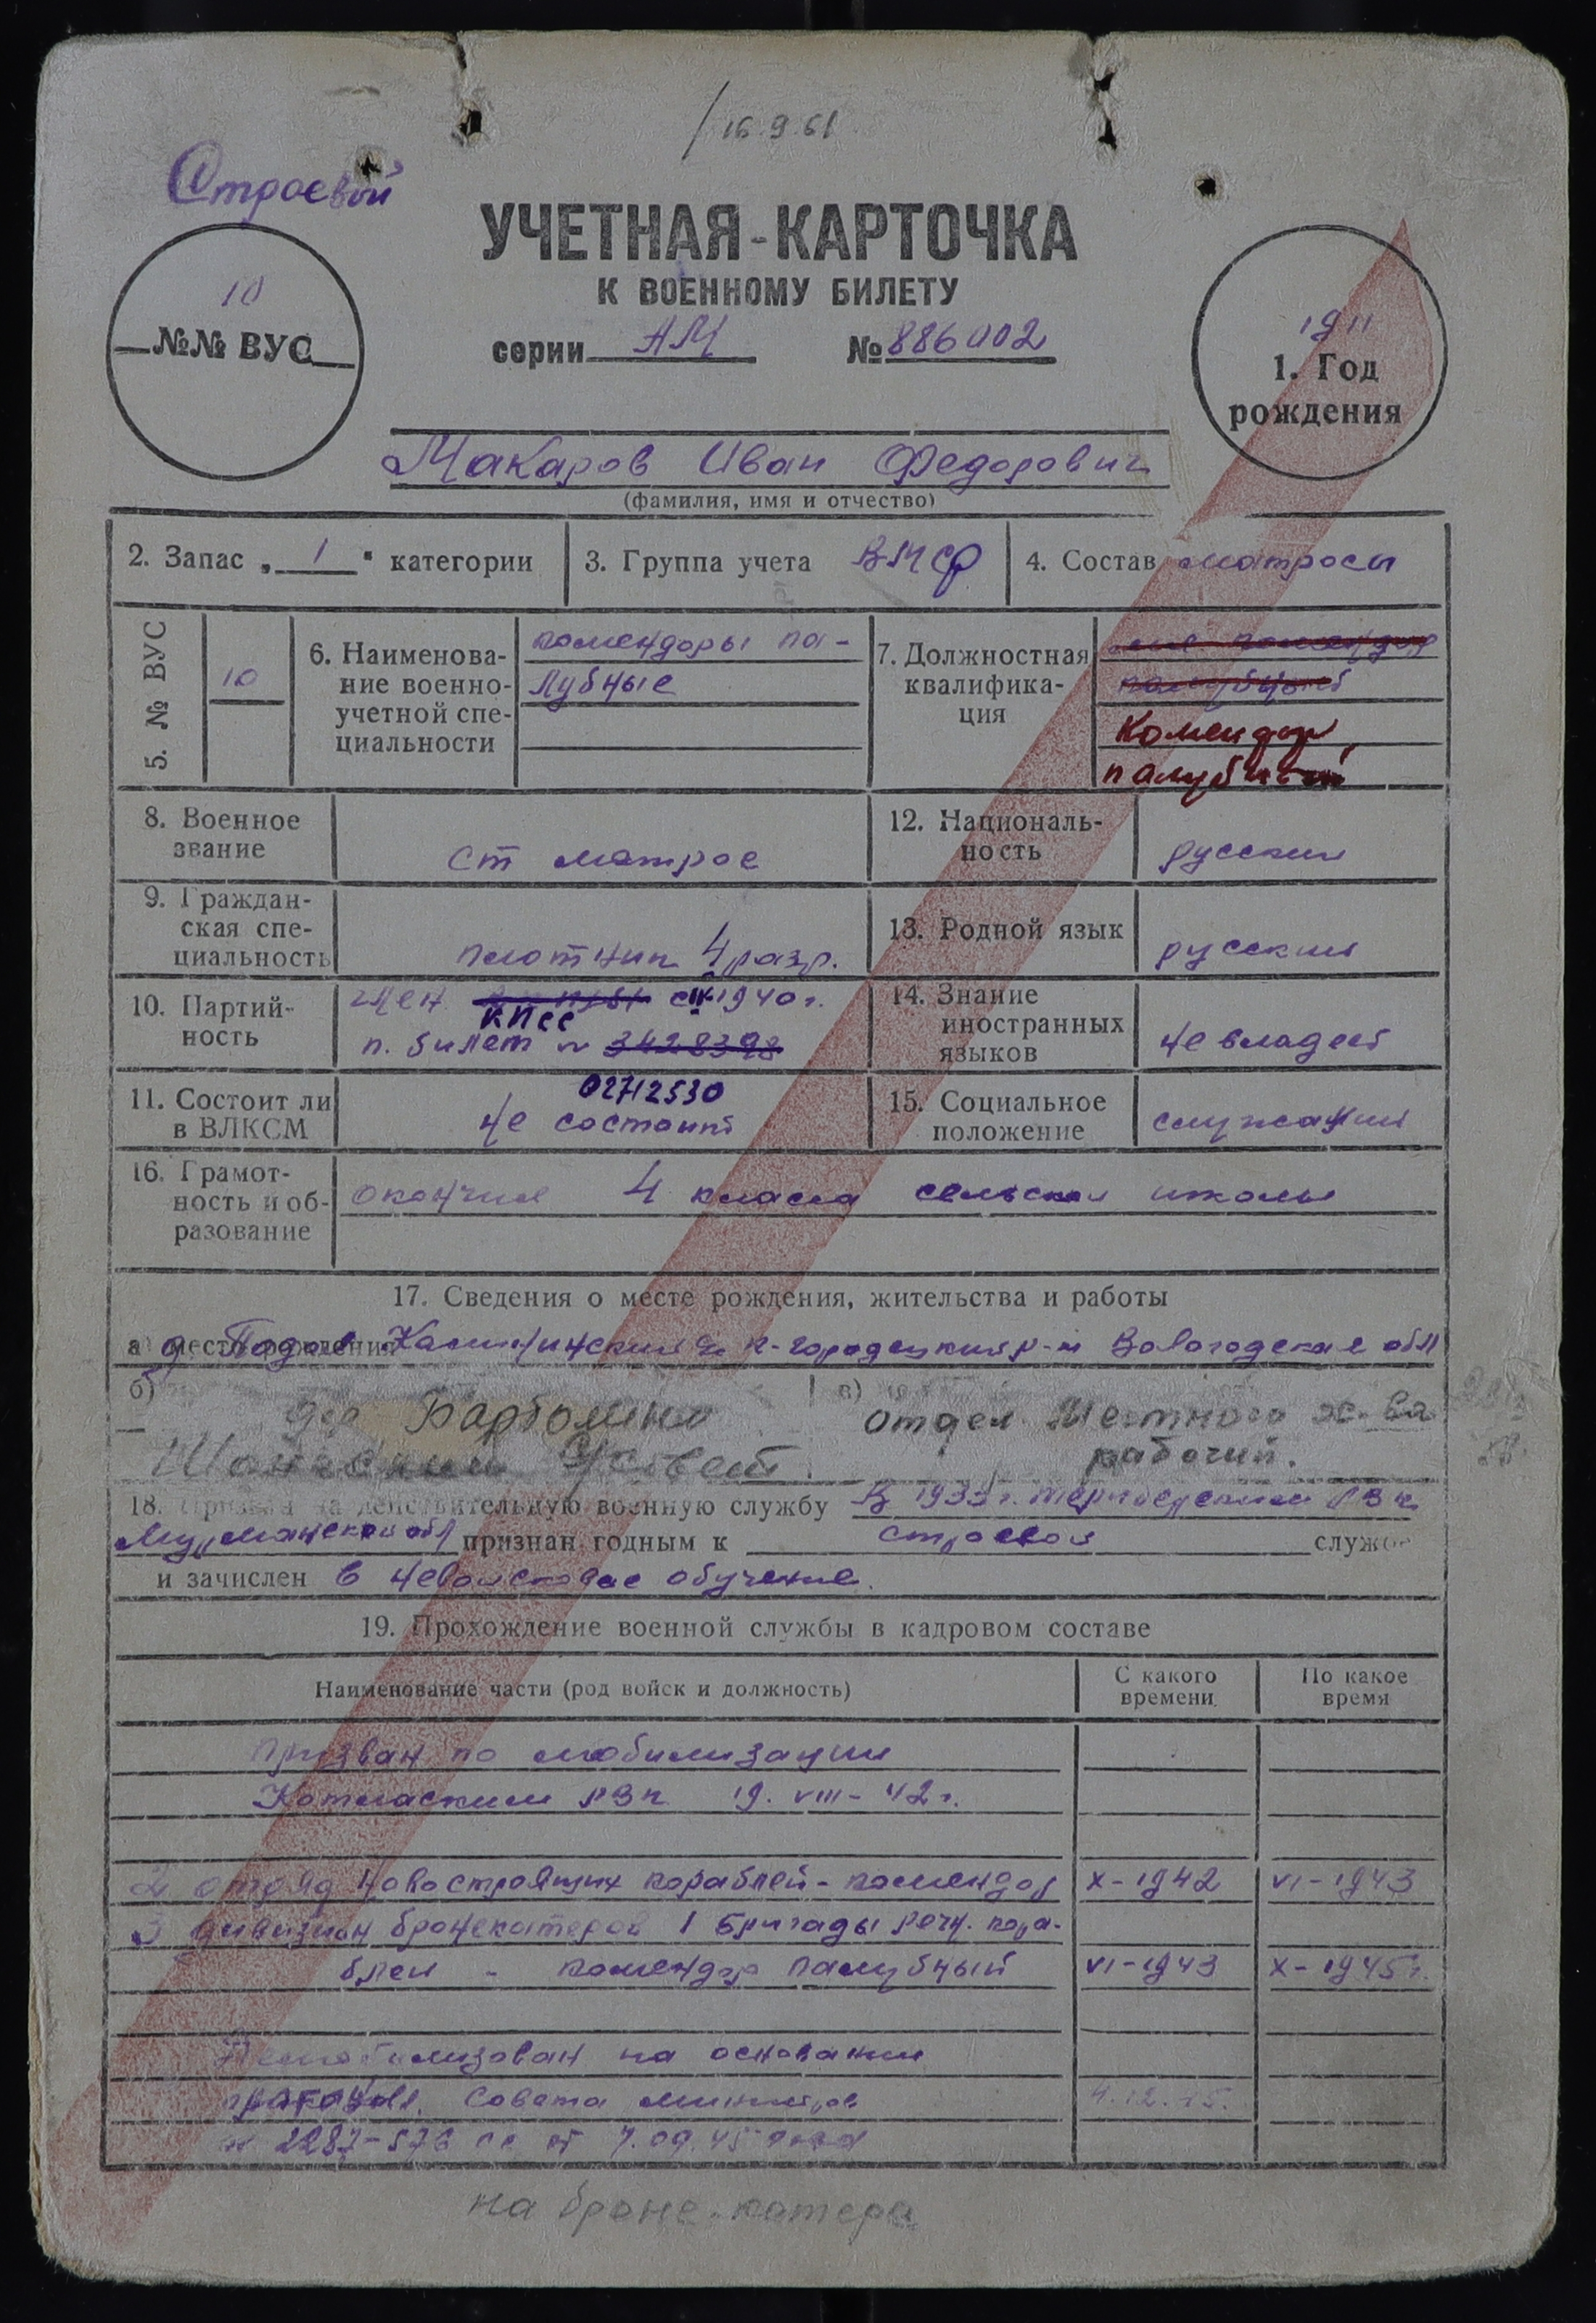 16.9.61
Строевой
УЧЕТНАЯ-КАРТОЧКА
К ВОЕННОМУ БИЛЕТУ
серии АМ № 886002
10
№№ ВУС
1911
1. Год
рождения
Макаров Иван Федорович
(фамилия, имя и отчество)
2. Запас „ 1 " категории
3. Группа учета ВМСФ
4. Состав матросы
5. № ВУС
10
6. Наименова-
ние военно-
учетной спе-
циальности
комендоры па-
лубные
7. Должностная
квалифика-
ция
Комендор
палубный
8. Военное
звание
ст матрос
12. Националь-
ность
русский
9. Граждан-
ская спе-
циальность
плотник 4 разр.
13. Родной язык
русский
10. Партий-
ность
член КПСС с IV 1940 г.
п. билет № 3428398
02712530
14. Знание
иностранных
языков
не владеет
11. Состоит ли
в ВЛКСМ
не состоит
15. Социальное
положение
служащий
16. Грамот-
ность и об-
разование
окончил 4 класса сельской школы
17. Сведения о месте рождения, жительства и работы
а) место рождения д. Калининский к-городецкий р-н Вологодская обл
б)
дер Варфомино
с/совет.
в)
отдел местного хо-ва
рабочий.
18. Призван на действительную военную службу В 1933 г. РВК
Мурманской обл признан годным к строевой службе
и зачислен в невойсковое обучение.
19. Прохождение военной службы в кадровом составе
Наименование части (род войск и должность)
С какого
времени
По какое
время
Призван по мобилизации
Котласским РВК 19. VIII-42 г.
2 отряд новостроящих кораблей - комендор X-1942 VI-1943
3 дивизион бронекатеров 1 Бригады речн. кора-
блей - комендор палубный VI-1943 X-1945 г.
Демобилизован на основании
Совета министров 4.12.45.
№ 2287-576 сс от 7.09.45 года
на броне-катере